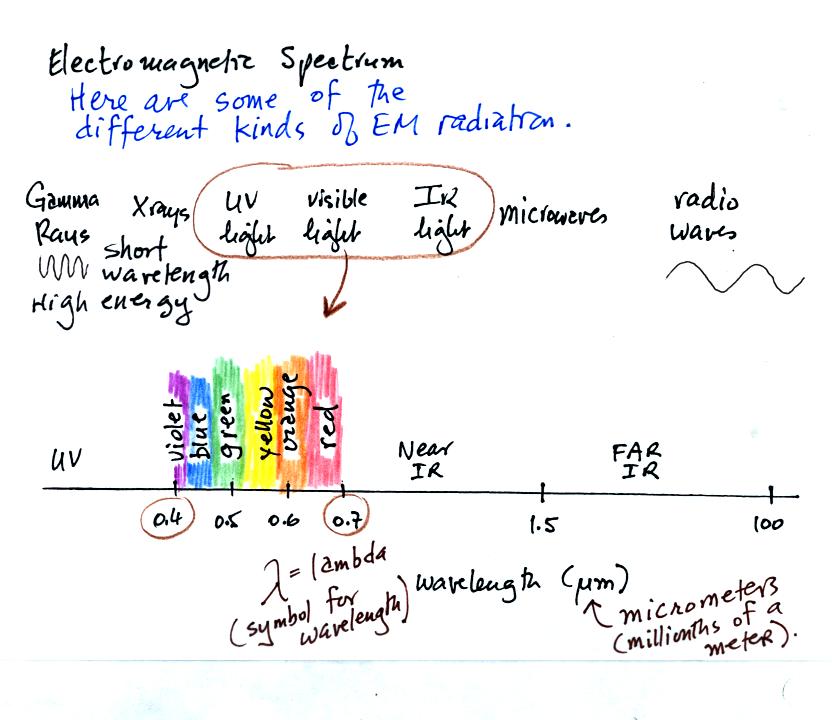 Electromagnetic Spectrum
Here are some of the
different kinds of EM radiation.
Gamma
Rays
Xrays
UV
light
visible
light
IR
light
microwaves
radio
waves
short
wavelength
High energy
UV
violet
blue
green
yellow
orange
red
Near
IR
FAR
IR
0.4
0.5
0.6
0.7
1.5
100
λ = lambda
(symbol for
wavelength)
wavelength (μm)
micrometers
(millionths of a
meter).